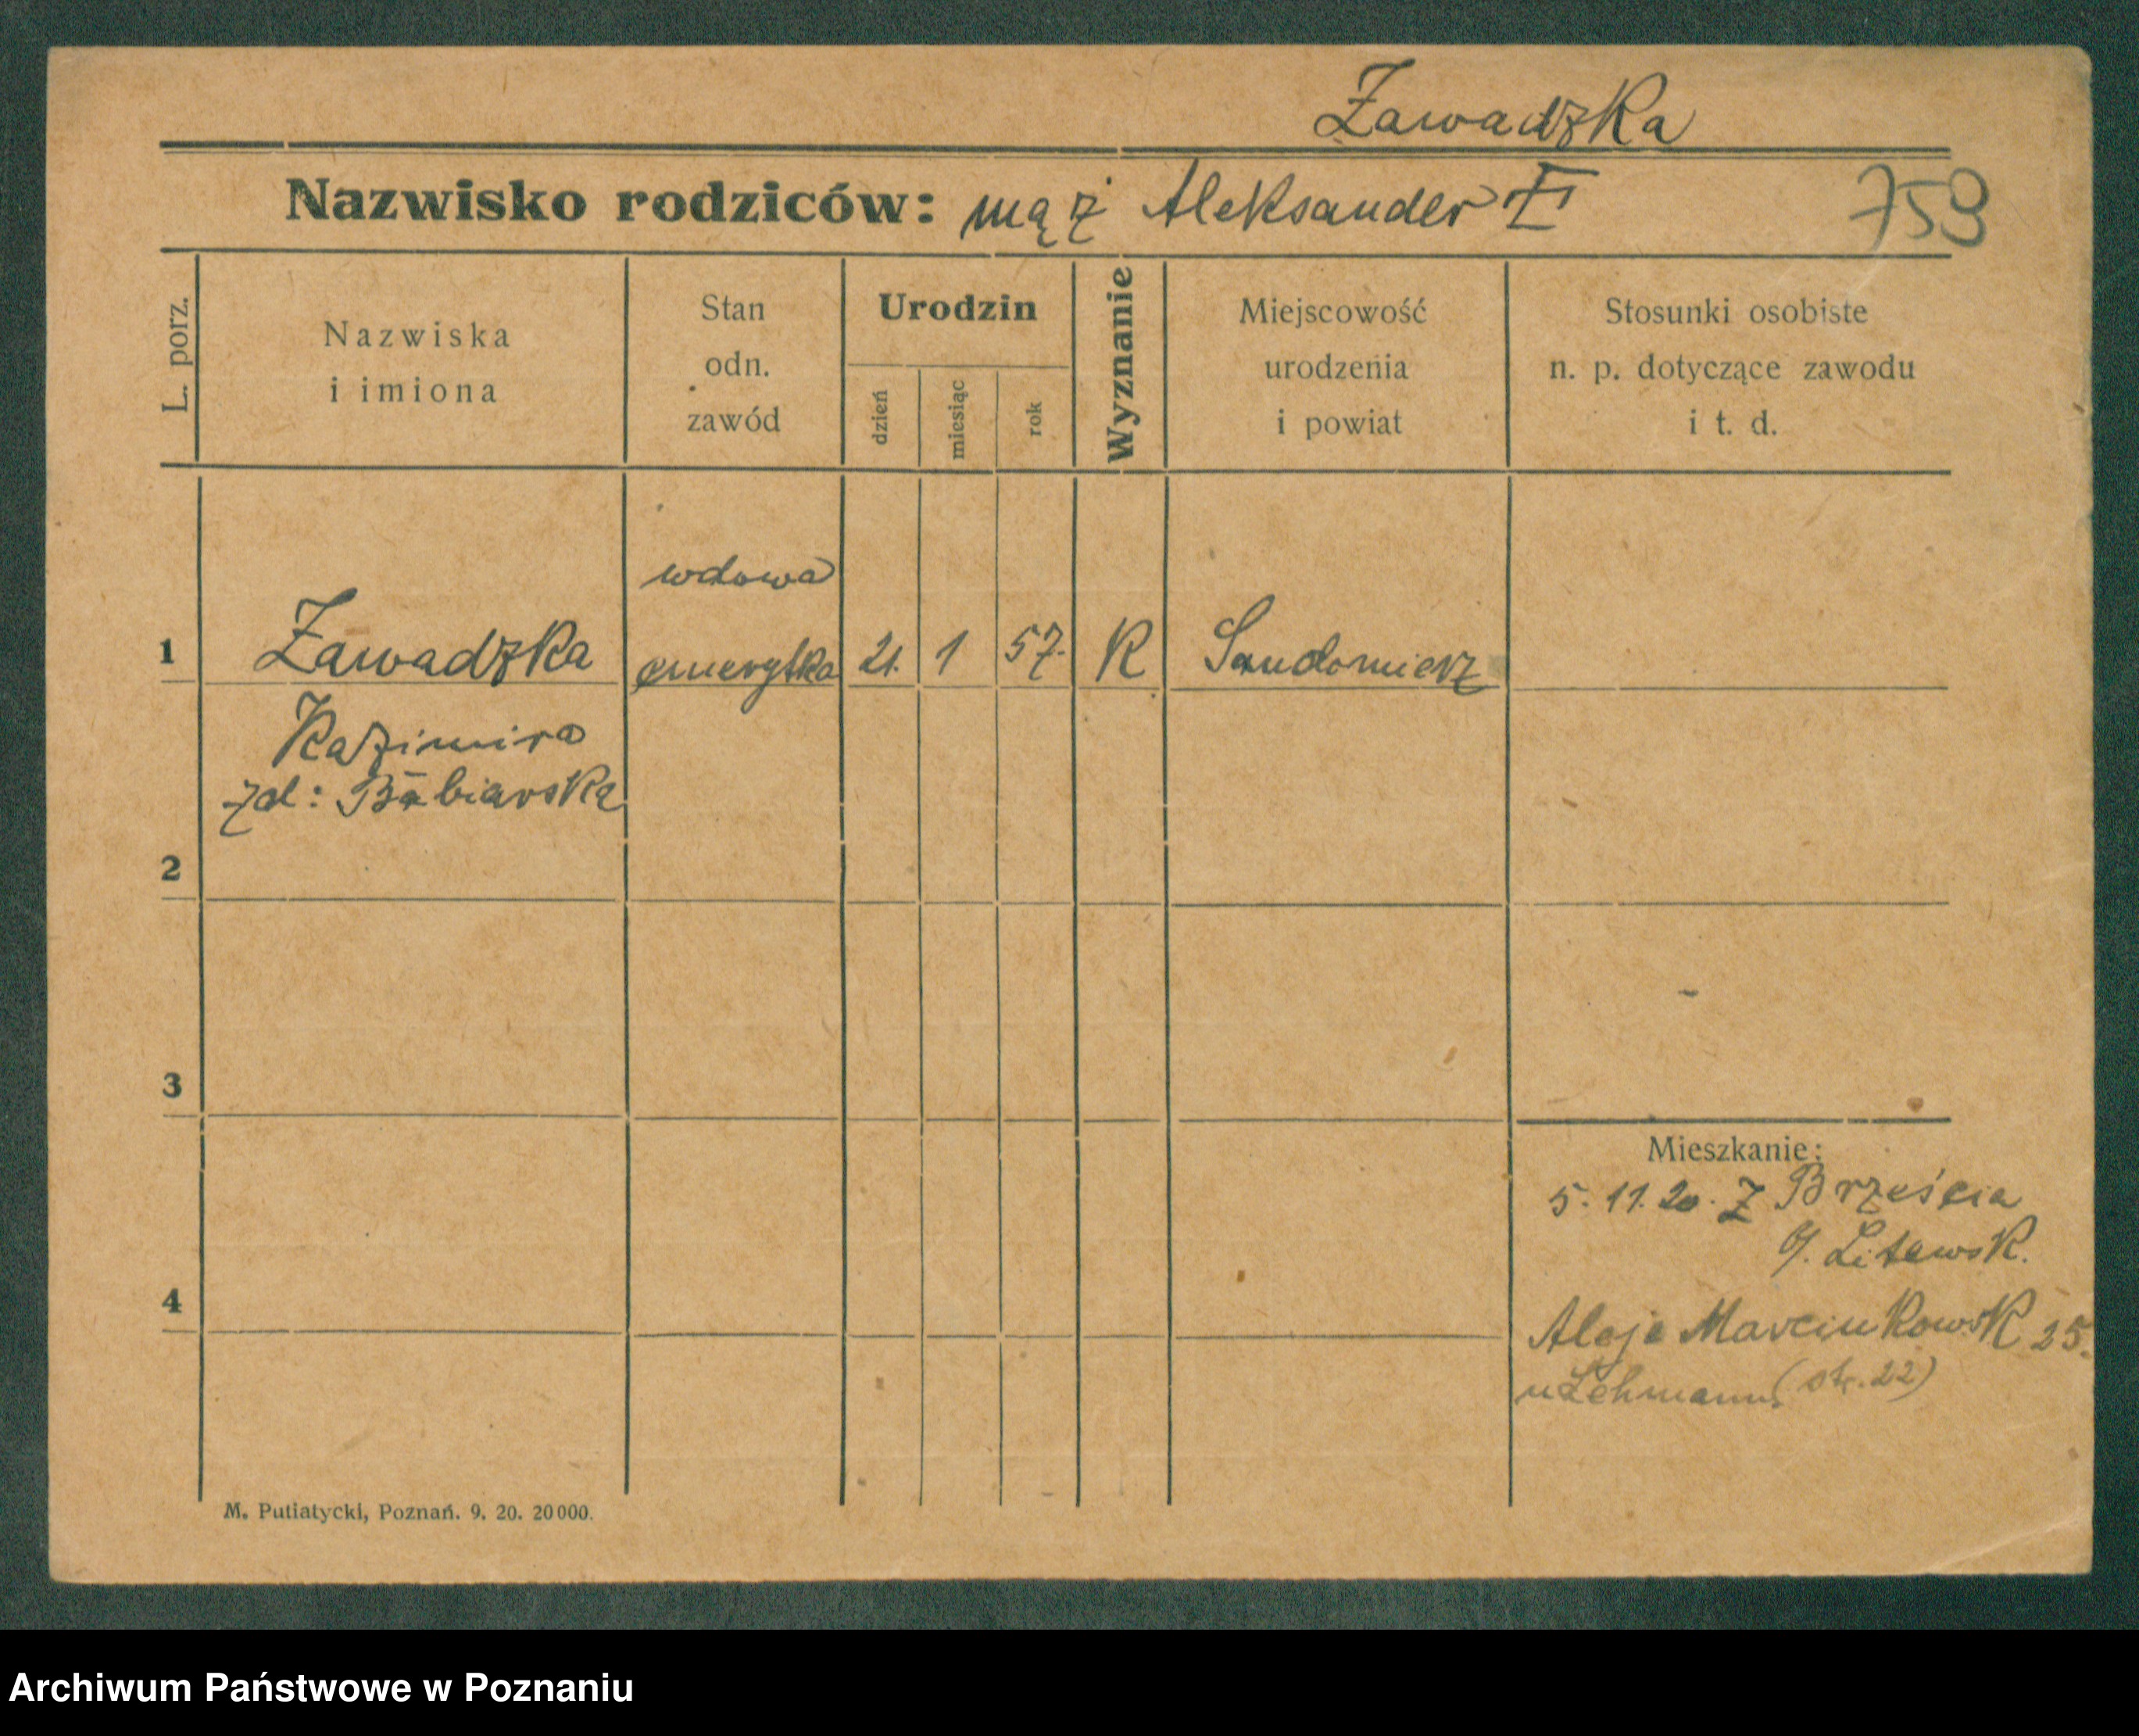 Zawadzka
Nazwisko rodziców: mąż Aleksander Z
759
L. porz.
Nazwiska
i imiona
Stan
odn.
zawód
Urodzin
dzień
miesiąc
rok
Wyznanie
Miejscowość
urodzenia
i powiat
Stosunki osobiste
n. p. dotyczące zawodu
i t. d.
wdowa
1 Zawadzka emerytka 21. 1 57. K Sandomierz
Kazimira
zd: Babiarska
2
3
Mieszkanie:
5. 11. 20. Z Brześcia
Litewsk.
4
Aleje Marcinkowsk 25.
u Lehmann (str. 22)
M. Putiatycki, Poznań. 9. 20. 20000.
Archiwum Państwowe w Poznaniu